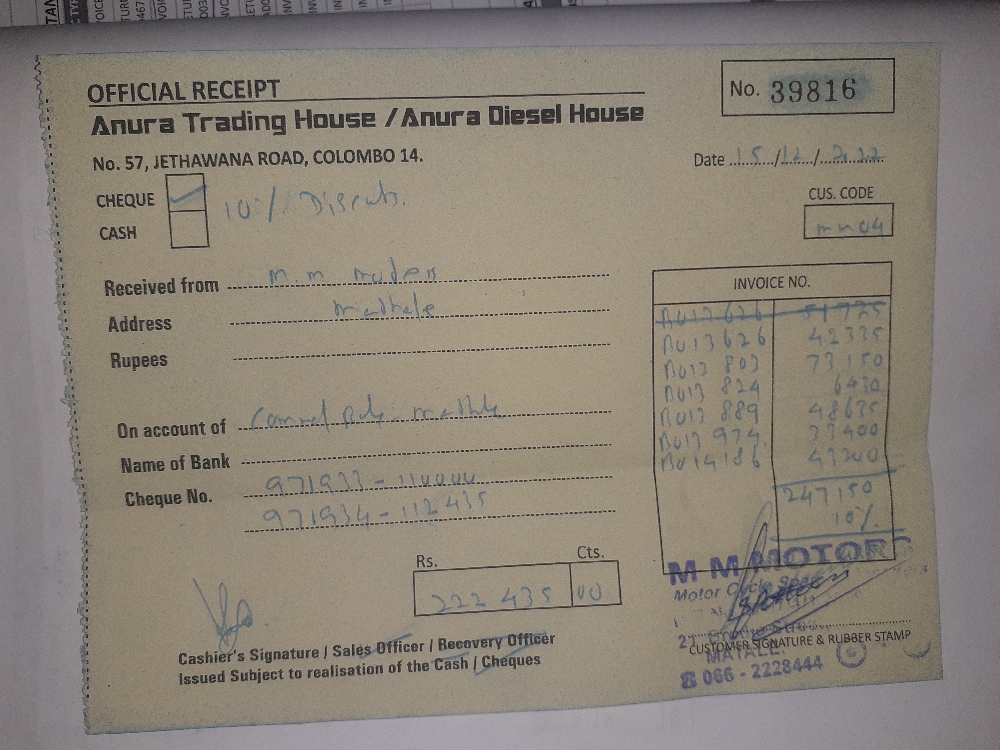 OFFICIAL RECEIPT
No. 39816
Anura Trading House / Anura Diesel House
No. 57, JETHAWANA ROAD, COLOMBO 14.
Date 15/12/2022
CHEQUE
10%
CASH
CUS. CODE
mm04
Received from M.M
Address
Rupees
INVOICE NO.
AU13626 51725
AU13626 42335
AU13 803 73150
AU13 824 6430
AU13 889 48635
AU13 974 33400
AU14186 43200
247150
10%
On account of
Name of Bank
Cheque No. 971933 - 110000
971934 - 112435
Rs. Cts.
222 435 00
M M MOTORS
Motor Cycle
MATALE.
066 - 2228444
CUSTOMER SIGNATURE & RUBBER STAMP
Cashier's Signature / Sales Officer / Recovery Officer
Issued Subject to realisation of the Cash / Cheques